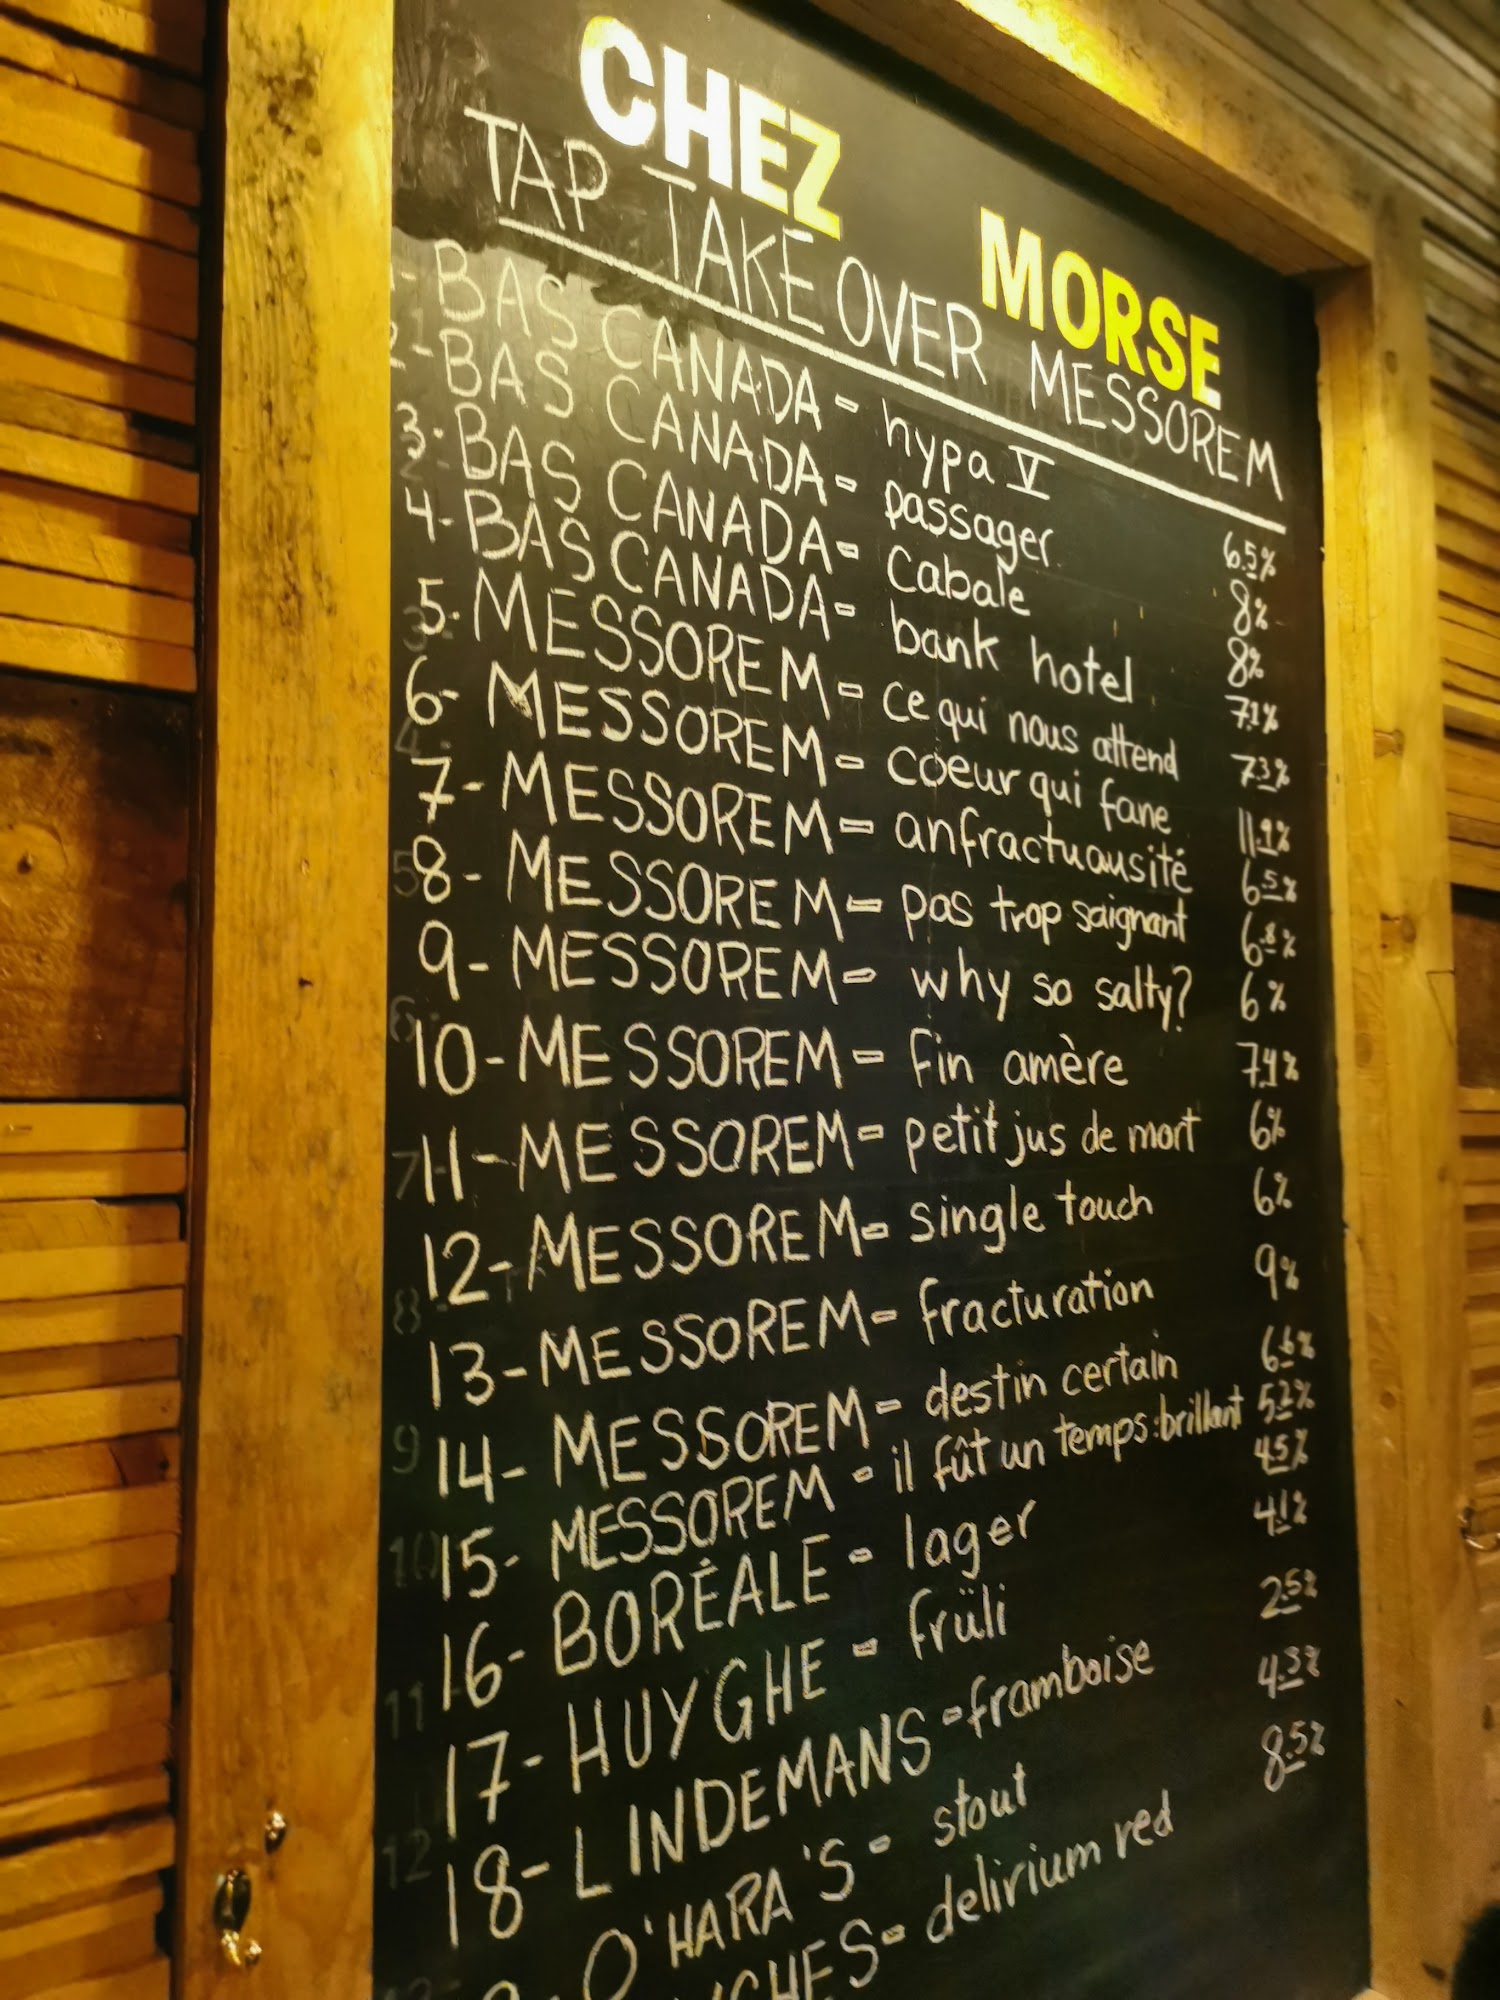 CHEZ MORSE
TAP TAKE OVER MESSOREM
1-BAS CANADA- hypa V 6.5%
2-BAS CANADA- passager 8%
3-BAS CANADA- Cabale 8%
4-BAS CANADA- bank hotel 7.1%
5-MESSOREM- ce qui nous attend 7.3%
6-MESSOREM- coeur qui fane 11.9%
7-MESSOREM- anfractuausité 6.5%
8-MESSOREM- pas trop saignant 6.8%
9-MESSOREM- why so salty? 6%
10-MESSOREM- fin amère 7.4%
11-MESSOREM- petit jus de mort 6%
12-MESSOREM- single touch 6%
13-MESSOREM- fracturation 9%
14-MESSOREM- destin certain 6.6%
15-MESSOREM- il fût un temps:brillant 5.2%
16-BORÉALE- lager 4.5%
17-HUYGHE- früli 4.1%
18-LINDEMANS-framboise 2.5%
O'HARA'S- stout 4.3%
delirium red 8.5%